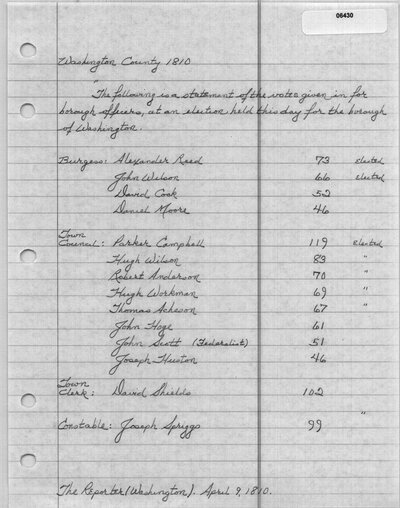 06430
Washington County 1810
"The following is a statement of the votes given in for
borough officers, at an election held this day for the borough
of Washington.
Burgess: Alexander Reed 73 elected
John Wilson 66 elected
David Cook 52
Daniel Moore 46
Town
Council: Parker Campbell 119 elected
Hugh Wilson 83 "
Robert Anderson 70 "
Hugh Workman 69 "
Thomas Acheson 67 "
John Hoge 61
John Scott (Federalist) 51
Joseph Huston 46
Town
Clerk: David Shields 102
Constable: Joseph Spriggs 99 "
The Reporter (Washington). April 9, 1810.